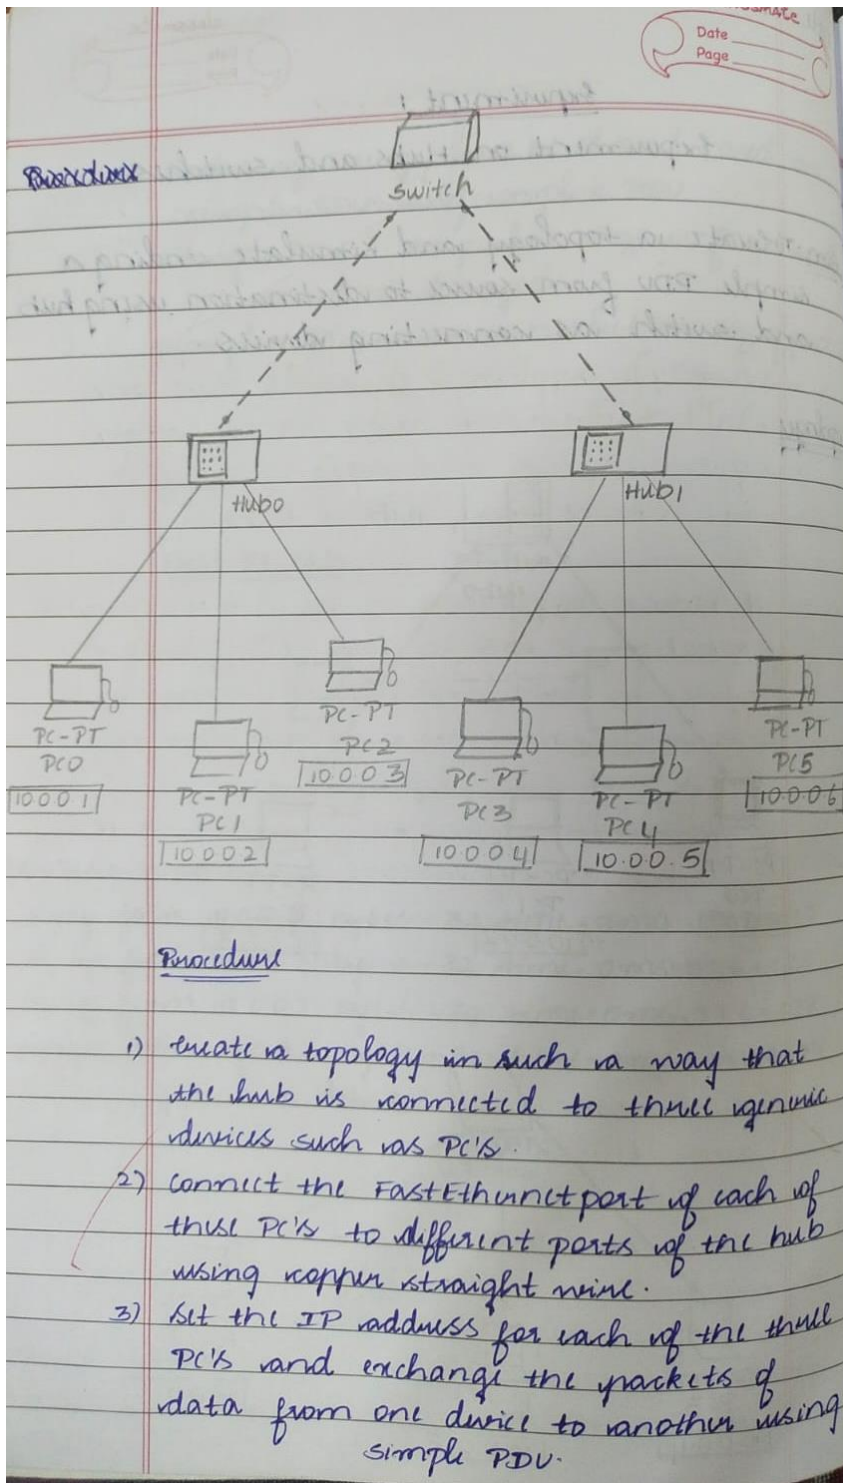 classmate
Date
Page
switch
Hub0
Hub1
PC-PT
PC0
10001
PC-PT
PC1
10002
PC-PT
PC2
10003
PC-PT
PC3
10004
PC-PT
PC4
10.00.5
PC-PT
PC5
10006
Procedure
1) Create a topology in such a way that
the hub is connected to three generic
devices such as PC's.
2) Connect the FastEthernet port of each of
these PC's to different ports of the hub
using copper straight wire.
3) Set the IP address for each of the three
PC's and exchange the packets of
data from one device to another using
simple PDU.